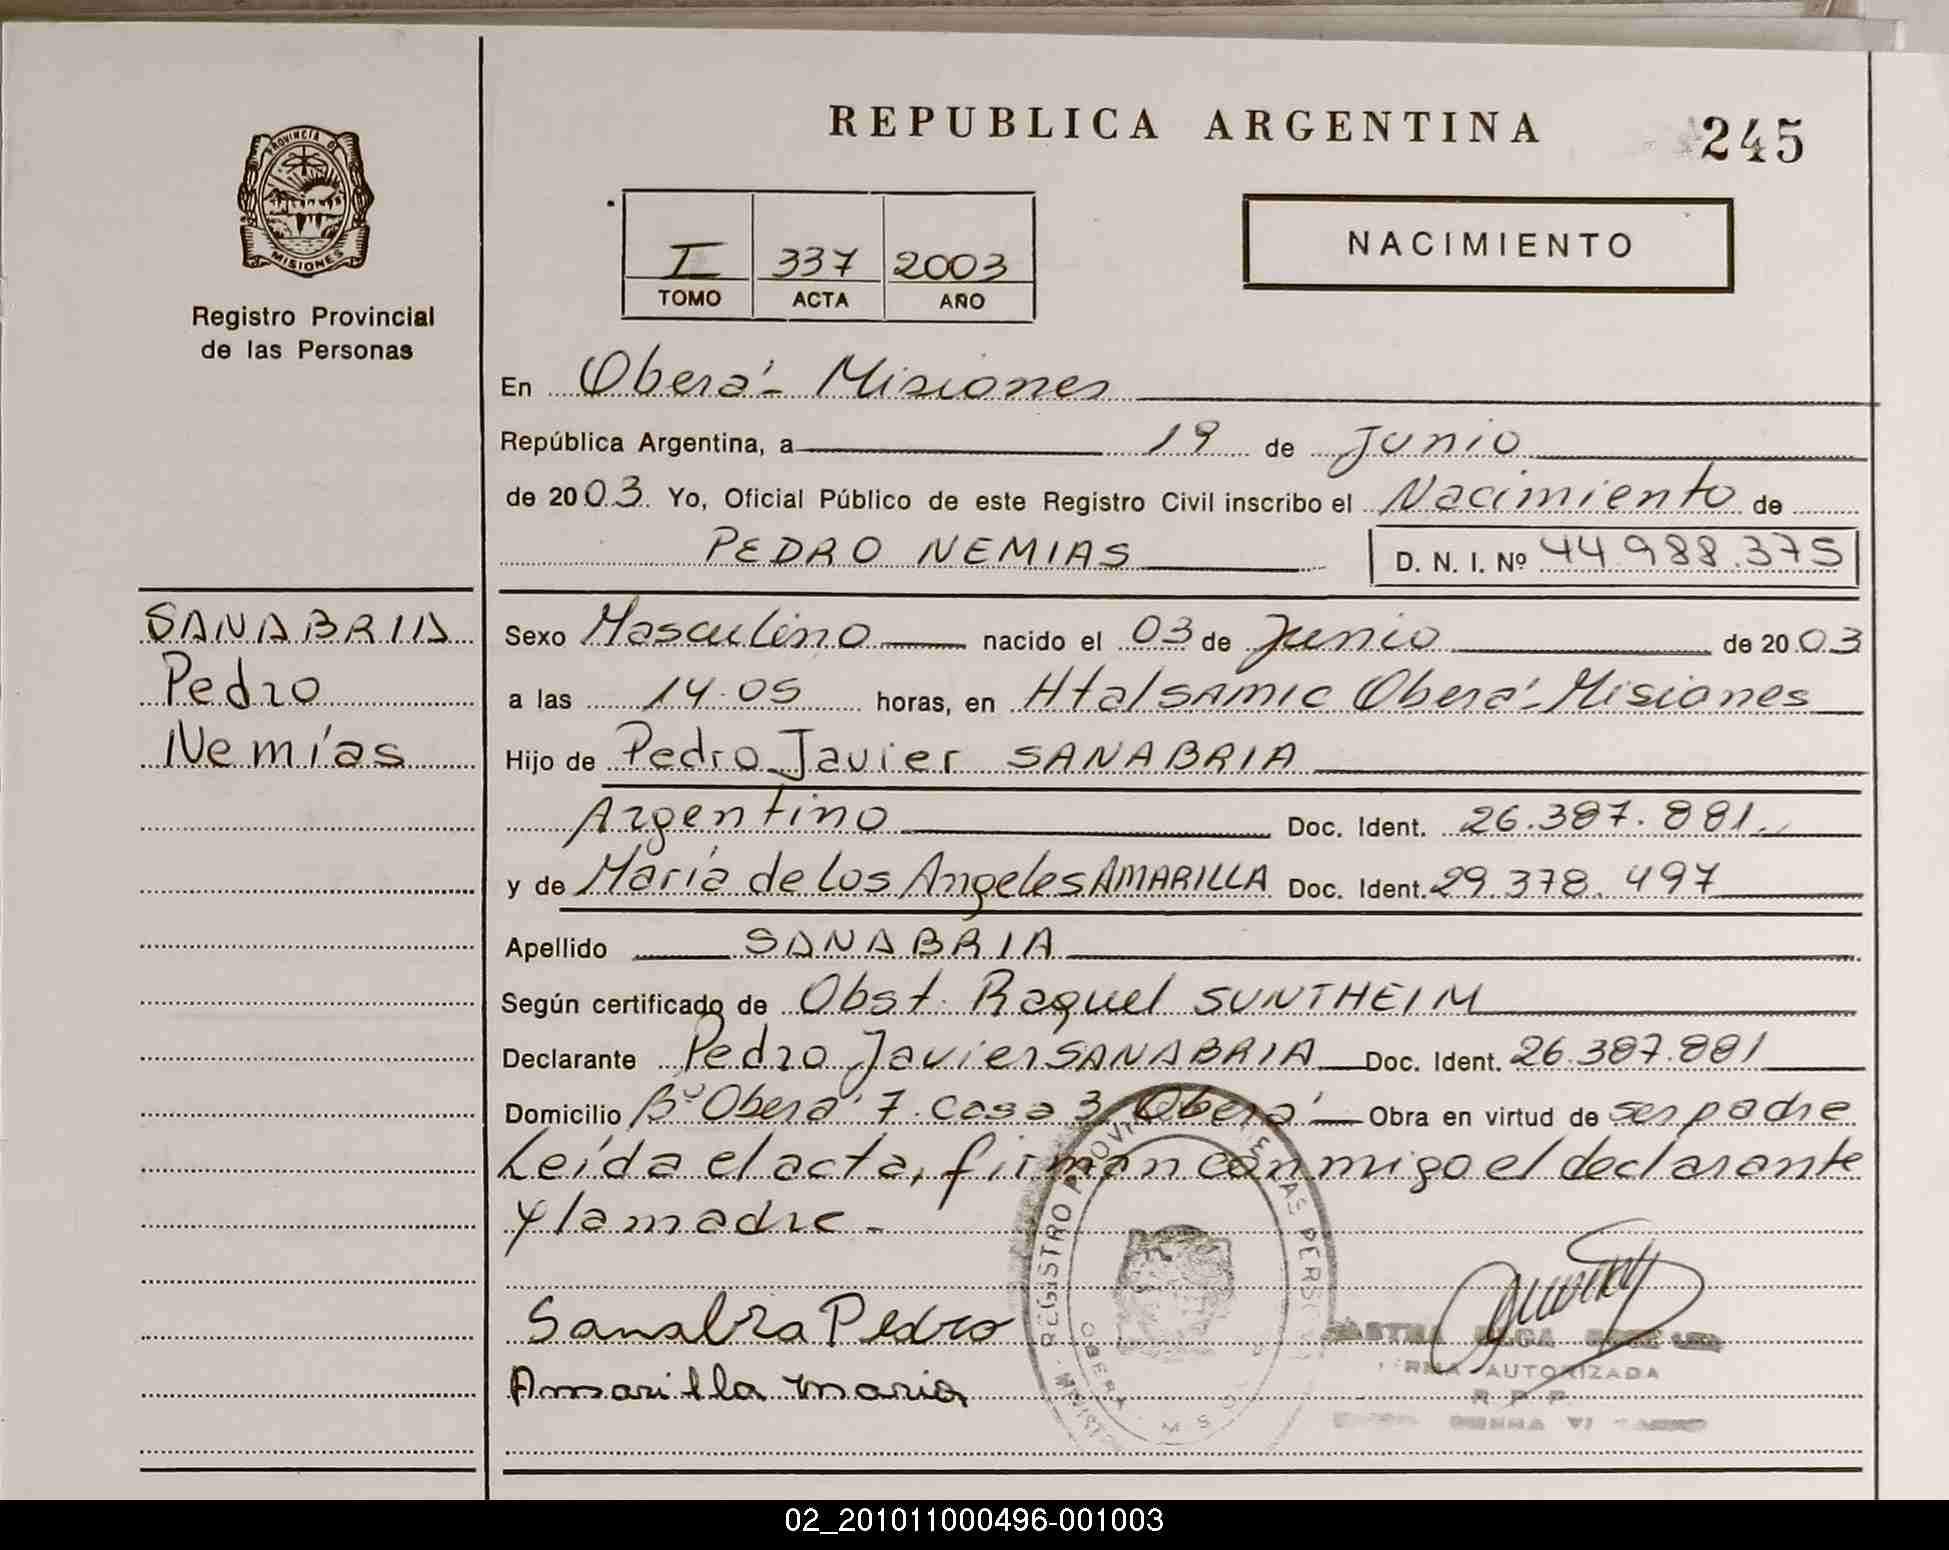 REPUBLICA ARGENTINA
245
PROVINCIA DE
MISIONES
Registro Provincial
de las Personas
I 337 2003
TOMO ACTA AÑO
NACIMIENTO
En Oberá - Misiones
República Argentina, a 19 de Junio
de 2003. Yo, Oficial Público de este Registro Civil inscribo el Nacimiento de
PEDRO NEMIAS D. N. I. Nº 44.988.375
SANABRIA
Pedro
Nemías
Sexo Masculino nacido el 03 de Junio de 2003
a las 14.05 horas, en Htal SAMIC Oberá - Misiones
Hijo de Pedro Javier SANABRIA
Argentino Doc. Ident. 26.387.881.
y de María de los Angeles AMARILLA Doc. Ident. 29.378.497
Apellido SANABRIA
Según certificado de Obst. Raquel SUNTHEIM
Declarante Pedro Javier SANABRIA Doc. Ident. 26.387.881
Domicilio Bº Oberá 7 Casa 3 Oberá Obra en virtud de ser padre
Leída el acta, firman conmigo el declarante
y la madre -
Sanabria Pedro
Amarilla maria
REGISTRO
AUTORIZADA
02_201011000496-001003